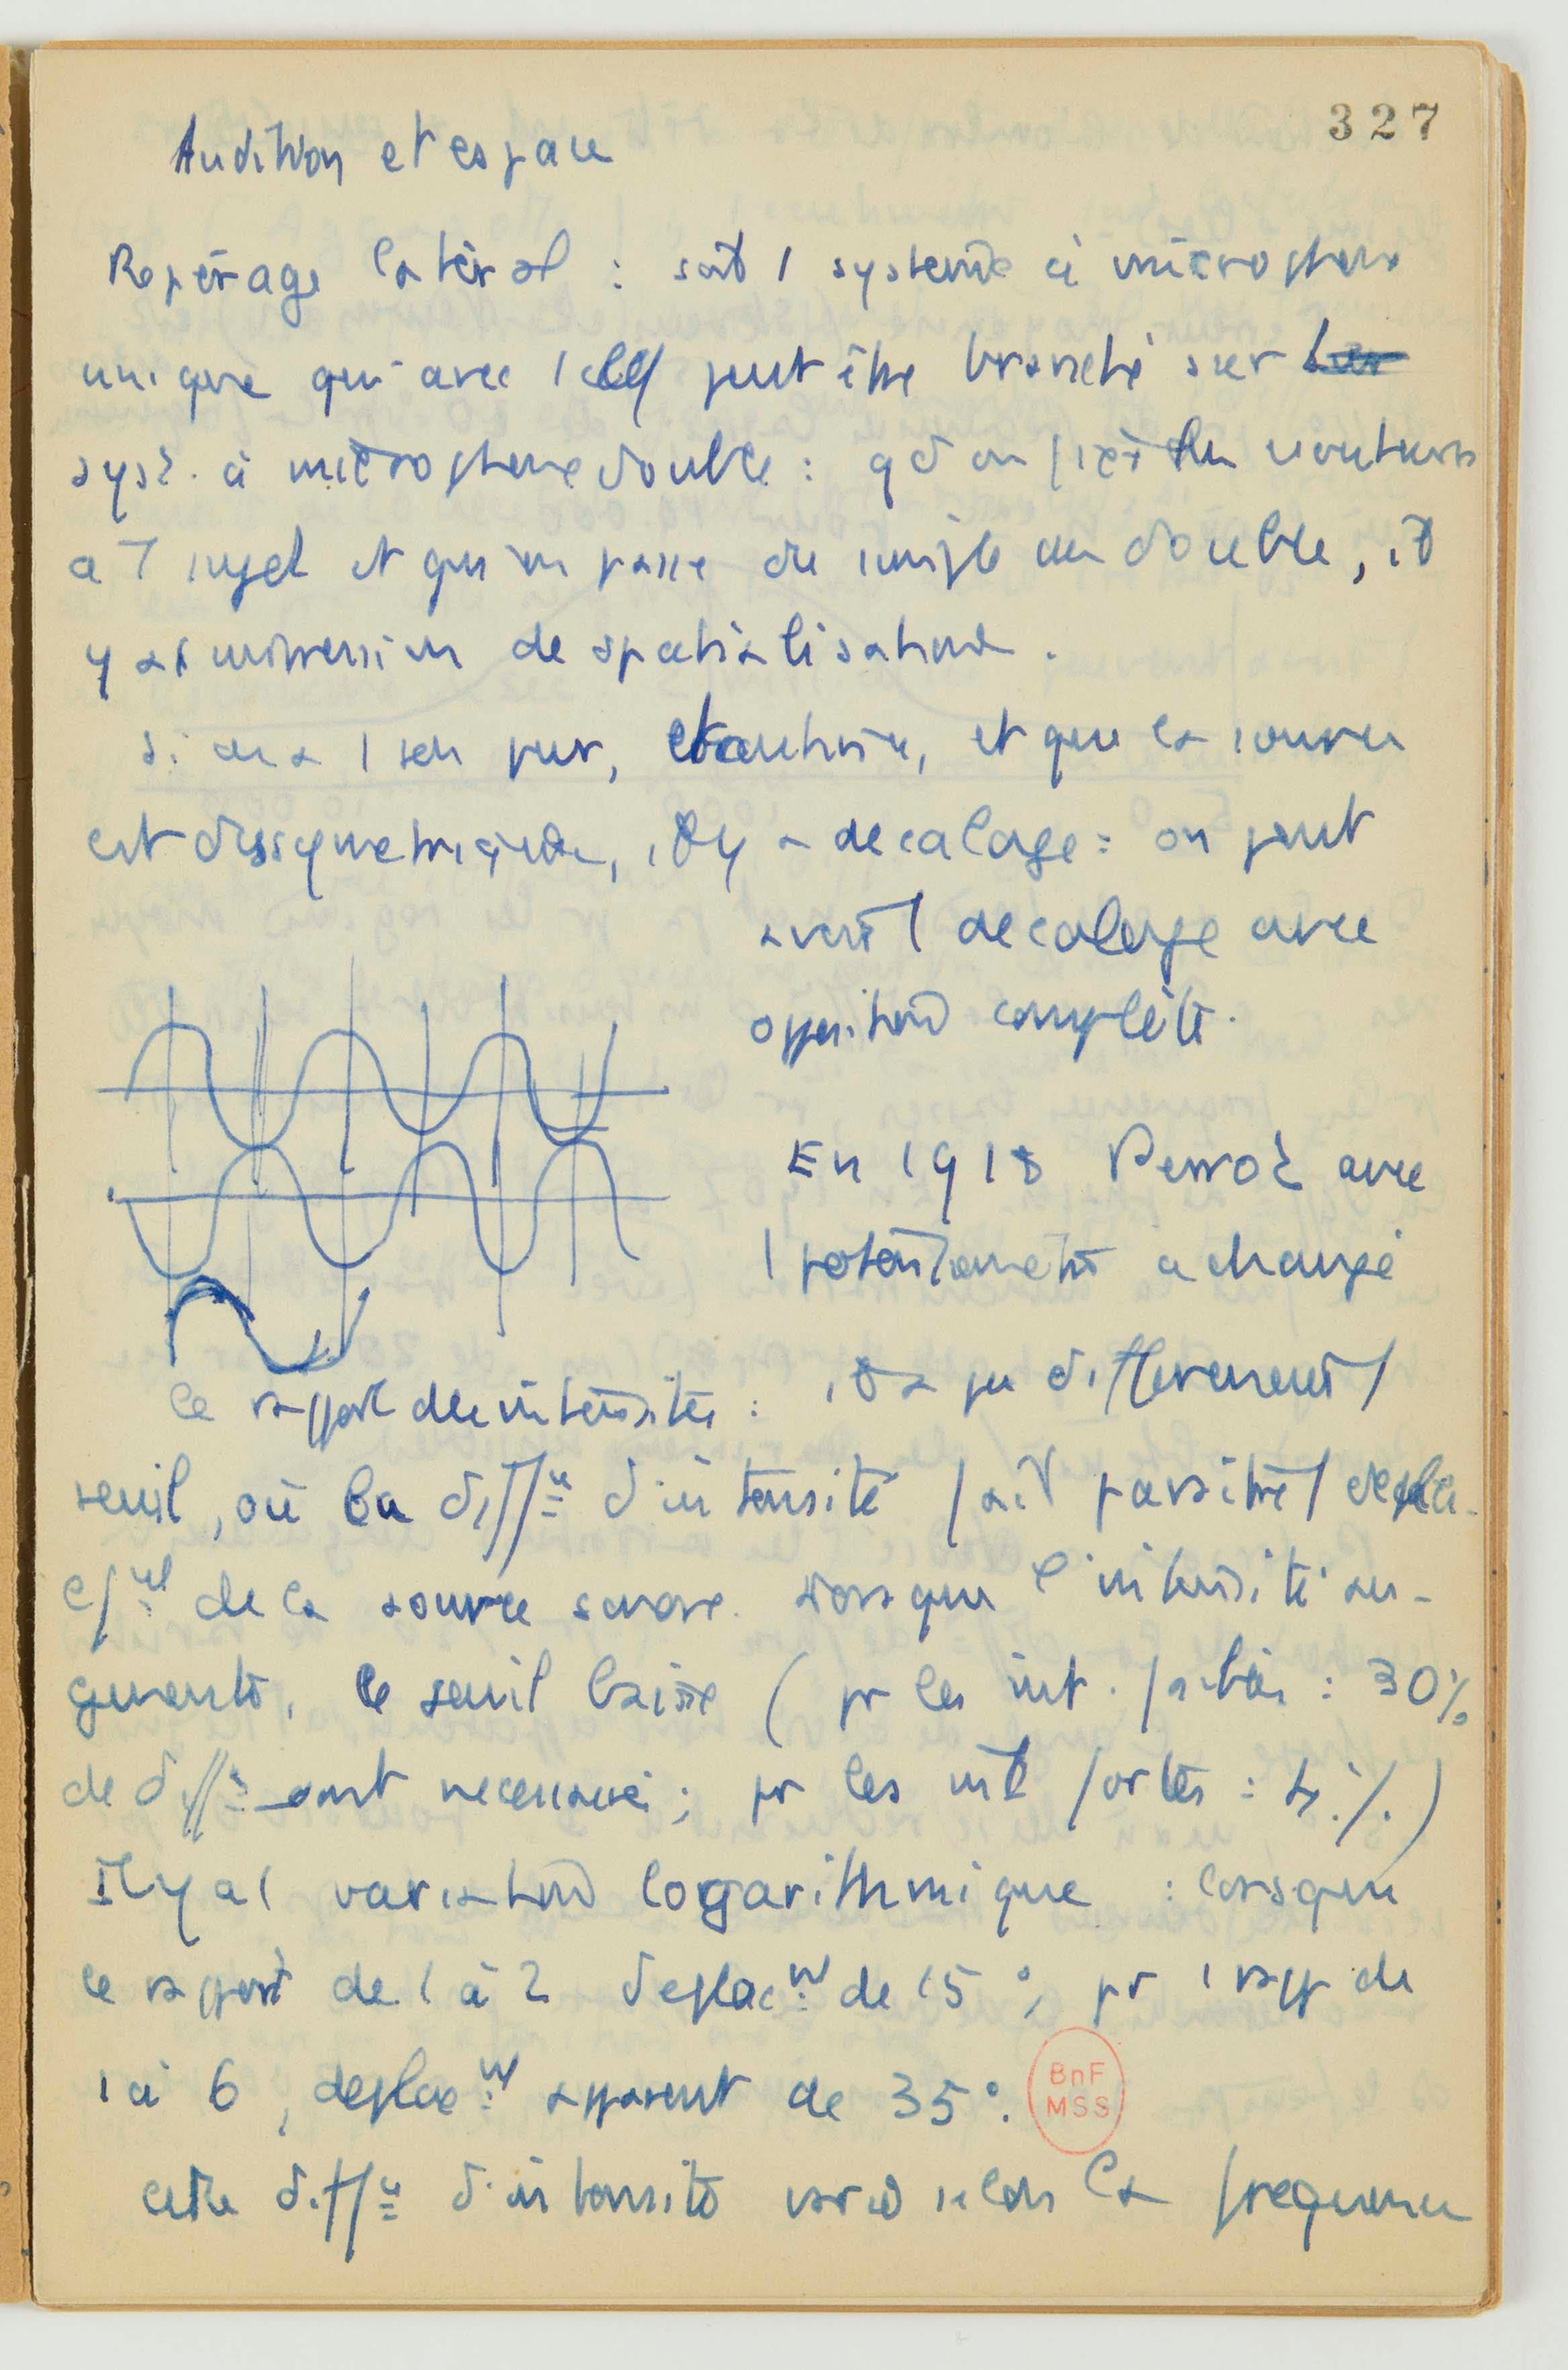 327
Audition et espace
Repérage latéral : soit 1 système à microphone
unique qui avec 1 peut être branché sur
syst. à microphone double : qd on fait écouteurs
à 1 sujet et qu'on passe du simple au double, il
y a 1 impression de spatialisation.
Si on a 1 son pur, et que la source
est dissymétrique, il y a décalage : on peut
avoir 1 décalage avec
opposition complète.
En 1918 avec
1 potentiomètre a changé
le rapport des intensités : il a pu 1
seuil, où la diffce d'intensité fait paraître 1 dépla-
cemt de la source sonore. Lorsque l'intensité au-
gmente, le seuil baisse ( pr les int. faibles : 30%
de diffce sont nécessaires ; pr les int fortes : %.)
Il y a 1 variation logarithmique : lorsque
le rapport de 1 à 2 déplacmt de 15° ; pr 1 rapp de
1 à 6, déplacmt apparent de 35°.
BnF
MSS
Cette diffce d'intensité varie selon la fréquence